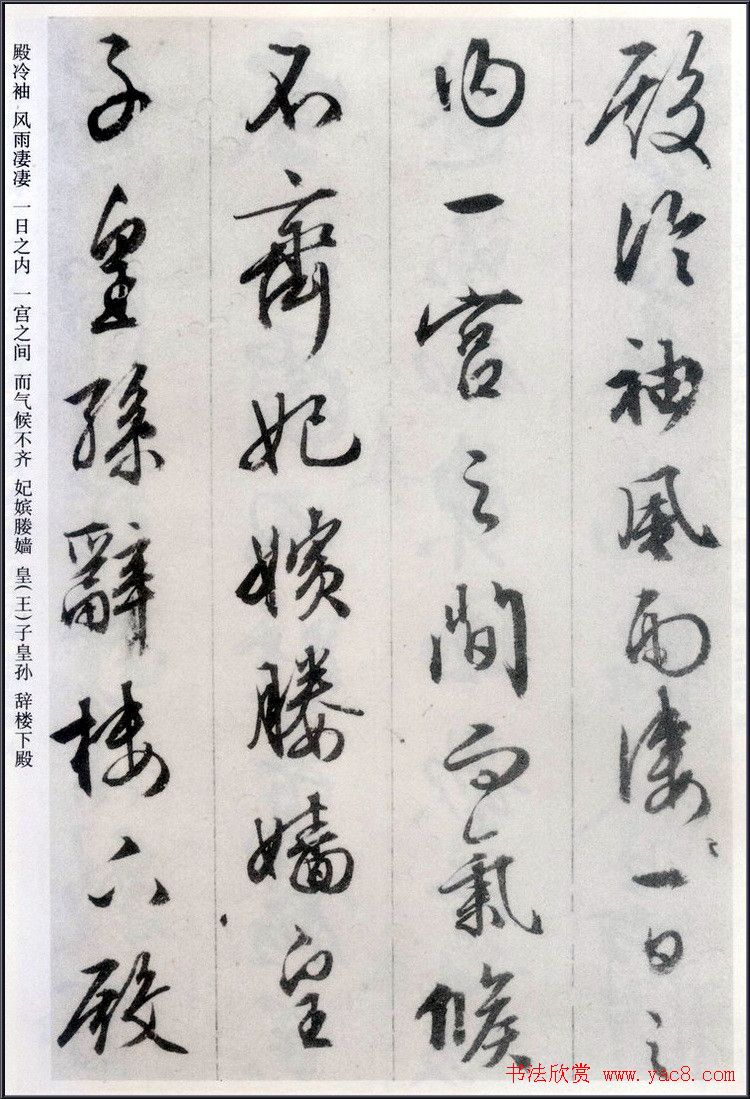 殿冷袖風雨凄〻一日之
内一宫之間而氣候
不齊妃嬪媵嬙皇
子皇孫辭樓下殿
殿冷袖 风雨凄凄 一日之内 一宫之间 而气候不齐 妃嫔媵嫱 皇(王)子皇孙 辞楼下殿
书法欣赏 www.yac8.com